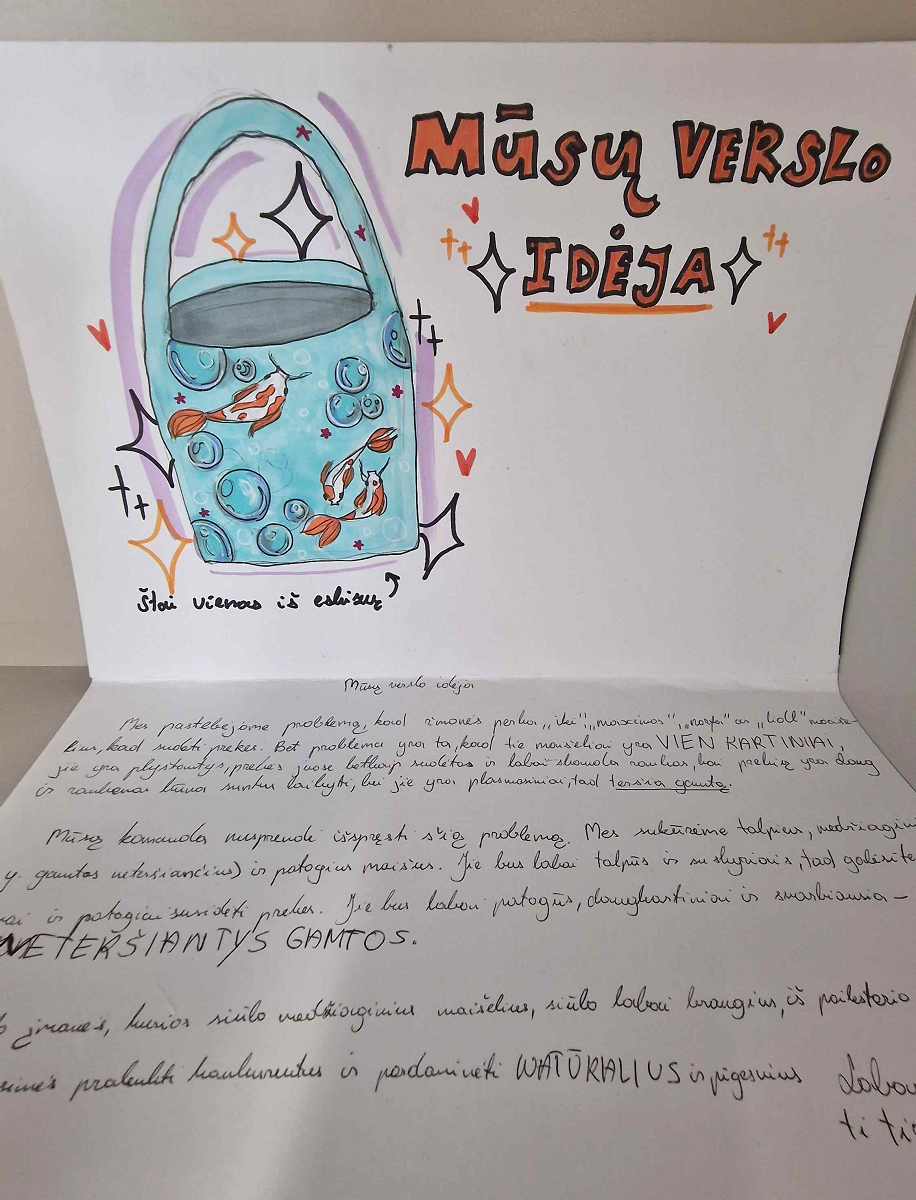 MŪSŲ VERSLO
IDĖJA
Štai vienas iš eskizų
Mūsų verslo idėja
Mes pastebėjome problemą, kad žmonės perka ,,iki'', ,,maximos'', ,,norfa'' ar ,,Lidl'' maiše-
lius, kad sudėti prekes. Bet problema yra ta, kad tie maišeliai yra VIENKARTINIAI,
jie yra plyštantys, prekės juose betkaip sudėtos ir labai skauda rankas, kai prekių yra daug
ir rankenas būna sunku laikyti, bei jie yra plasmasiniai, tad teršia gamtą.
Mūsų komanda nusprendė išspręsti šią problemą. Mes sukūrėme talpius, medžiagini
y. gamtos neteršiančius) ir patogius maišus. Jie bus labai talpūs ir su skyriais, tad galėsite
ai ir patogiai susidėti prekes. Jie bus labai patogūs, daugkartiniai ir svarbiausia -
NETERŠIANTYS GAMTOS.
įmonės, kurios siūlo medžiaginius maišelius, siūlo labai brangius, iš poilesterio
simės pralenkti konkurentus ir pardavinėti NATŪRALIUS ir pigesnius
Labai
ti ti